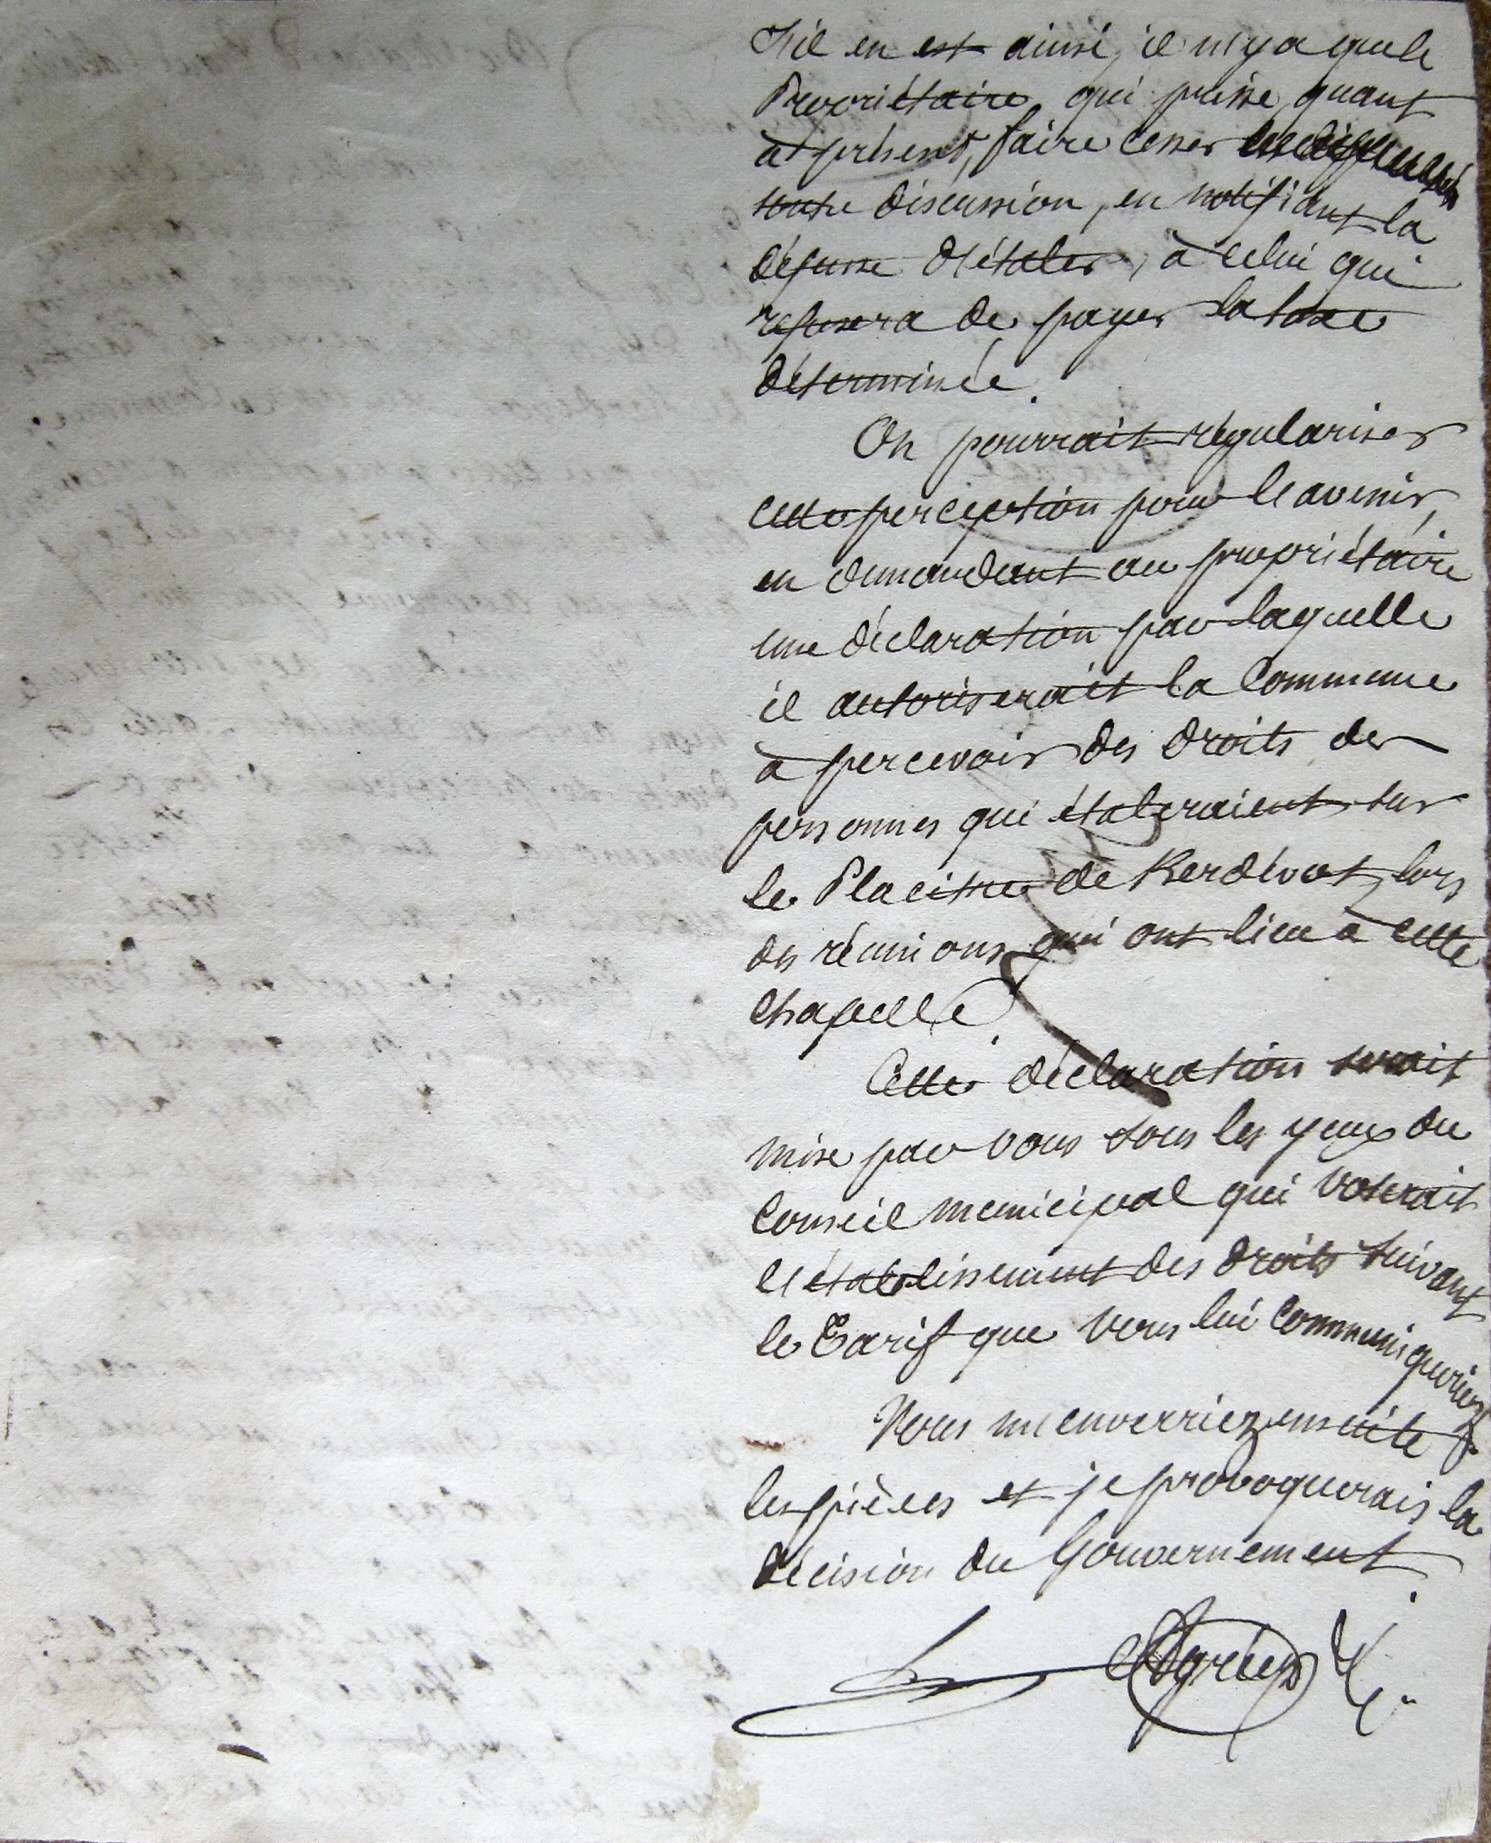 S'il en est ainsi, il n'y a que le
Propriétaire qui puisse, quant
à présent, faire cesser
toute discussion, en notifiant la
défense d'étaler, à celui qui
refusera de payer la taxe
déterminée.
On pourrait régulariser
cette perception pour l'avenir,
en demandant au propriétaire
une déclaration par laquelle
il autoriserait la Commune
à percevoir des droits des
personnes qui étaleraient sur
le Placitre de Kerdévot, lors
des réunions qui ont lieu à cette
chapelle.
Cette déclaration serait
mise par vous sous les yeux du
Conseil municipal qui voterait
l'établissement des droits suivant
le Tarif que vous lui communiqueriez.
Vous m'enverriez ensuite
les pièces et je provoquerais la
décision du Gouvernement.
Agréez &a.